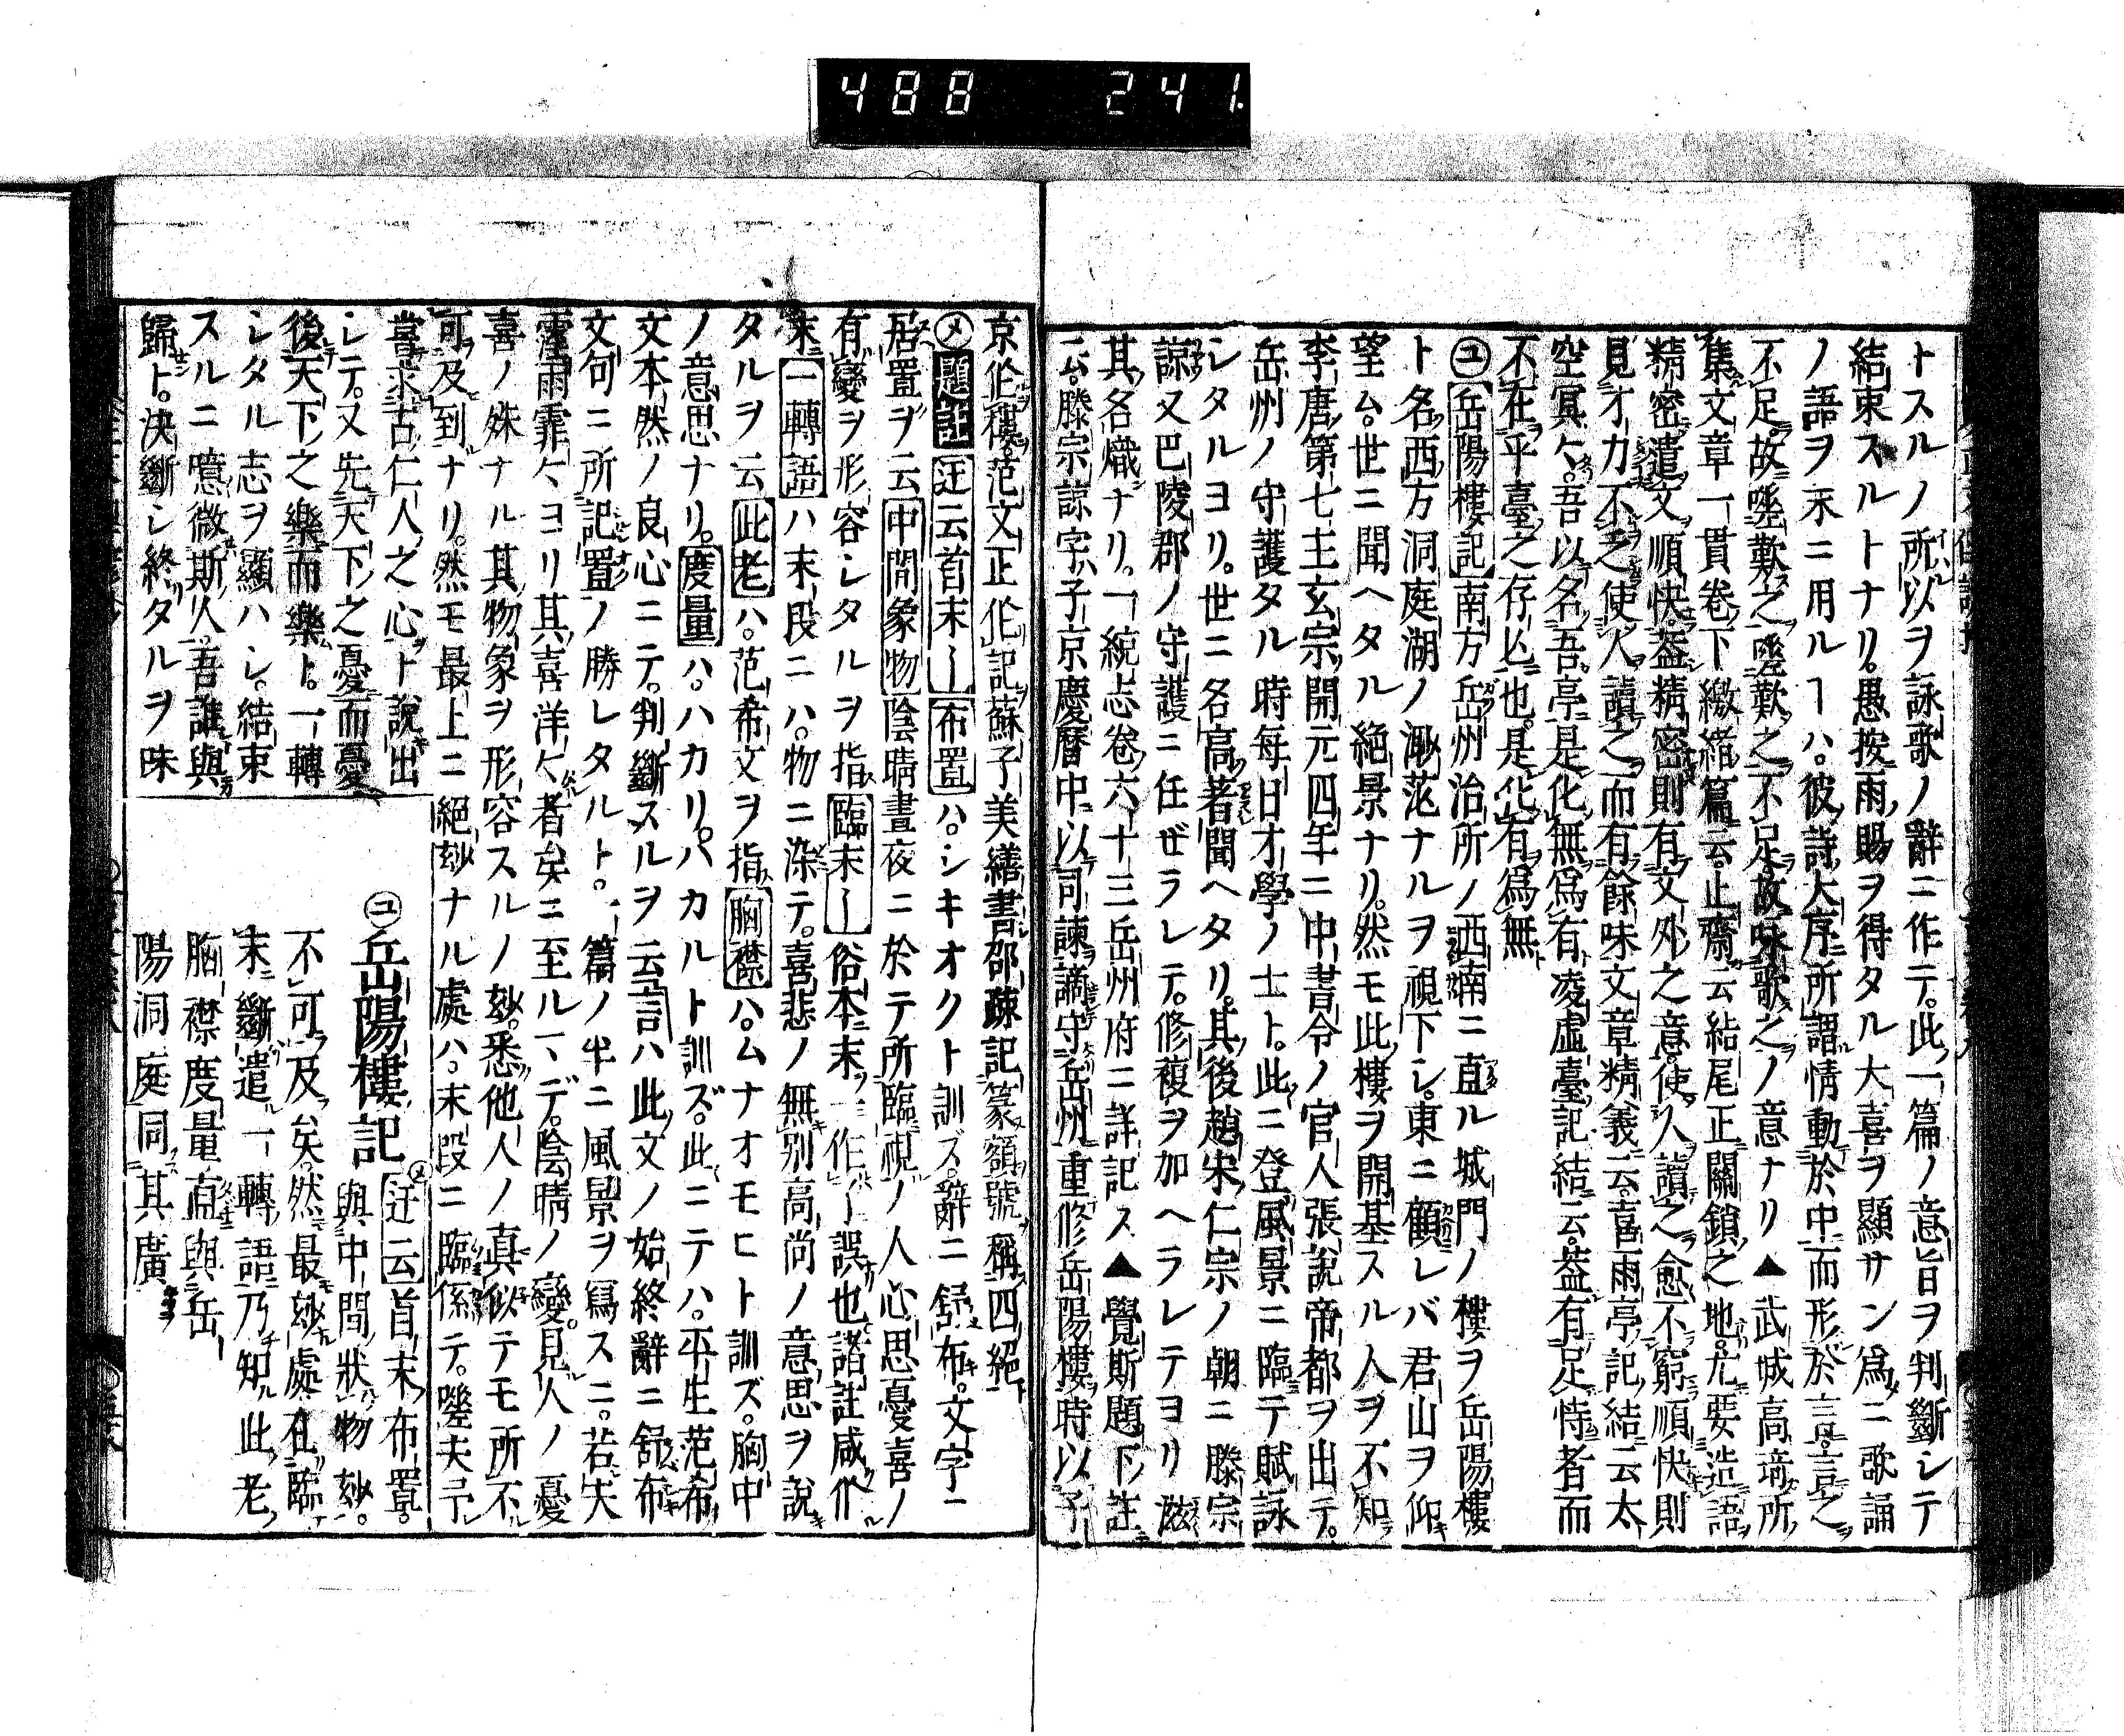 488 241
トスルノ所以ヲ詠歌ノ辭ニ作テ。此一篇ノ意旨ヲ判斷シテ
結束スルトナリ。愚按雨賜ヲ得タル大喜ヲ顯サン爲ニ歌誦
ノ語ヲ末ニ用ルヿハ。彼詩大序所謂情動於中而形於言。言之
不足故嗟歎之。嗟歎之不足。故咏歌之ノ意ナリ▲武城高竒所
集文章一貫卷下繳結篇云。止齋云結尾正關鎖之地。尤要造語
精密遣文順快。蓋精密則有文外之意。使人讀之愈不窮順快則
見才力不乏使人讀之而有餘味文章精義云。喜雨亭記結云太
空冥〻。吾以名吾亭是化無爲有凌虛臺記結云。蓋有足恃者而
不在乎臺之存亡也。是化有爲無
㋴岳陽樓記南方岳州治所ノ西南ニ直ル城門ノ樓ヲ岳陽樓
ト名西方洞庭湖ノ渺茫ナルヲ視下シ。東ニ顧レバ君山ヲ仰
望ム。世ニ聞ヘタル絕景ナリ。然モ此樓ヲ開基スル人ヲ不知
李唐第七主玄宗開元四年ニ中書令ノ官人張說帝都ヲ出テ。
岳州ノ守護タル時每日才學ノ士ト。此ニ登風景ニ臨テ賦詠
シタルヨリ。世ニ名高著聞ヘタリ。其後趙宋仁宗ノ朝ニ滕宗
諒又巴陵郡ノ守護ニ任ゼラレテ。修複ヲ加ヘラレテヨリ滋
其名熾ナリ。一統志卷六十三岳州府ニ詳記ス▲覺斯題下註
云。滕宗諒字子京慶曆中以司諫謫守岳州重修岳陽樓時以予
京作樓。范文正作記蘇子美繕書邵疎記篆額號稱四絕
㋱題註迂云首末〡布置ハ。シキオクト訓ズ。辭ニ舒布。文字ニ
居置ヲ云中間象物陰晴晝夜ニ於テ所臨視ノ人心思憂喜ノ
有變ヲ形容シタルヲ指臨末〡俗本末一作了誤也諸註咸作
末一轉語ハ末段ニハ。物ニ染テ。喜悲ノ無別高尚ノ意思ヲ說
タルヲ云此老ハ。范希文ヲ指胸襟ハ。ムナオモヒト訓ズ。胸中
ノ意思ナリ。度量ハ。ハカリ。ハカルト訓ズ。此ニテハ。平生范希
文本然ノ良心ニテ。判斷スルヲ云言ハ此文ノ始終辭ニ舒布
文句ニ所記置ノ勝レタルト。一篇ノ半ニ風景ヲ寫スニ。若夫
霪雨霏〻ヨリ其喜洋〻者矣ニ至ルマデ。陰晴ノ變。見人ノ憂
喜ノ殊ナル其物象ヲ形容スルノ玅。悉他人ノ真似テモ所不
可及到ナリ。然モ最上ニ絕玅ナル處ハ。末段ニ臨係テ。嗟夫予
嘗求古仁人之心ト說出
シテ。又先天下之憂而憂
後天下之樂而樂ト。一轉
シタル志ヲ顯ハシ。結束
スルニ噫微斯人。吾誰與
歸ト。決斷シ終タルヲ味
㋴岳陽樓記㋱迂云首末布置。
與中間狀物玅。
不可及矣。然最玅處在臨
末斷遣一轉語乃知此老
胸襟度量直與岳
陽洞庭同其廣